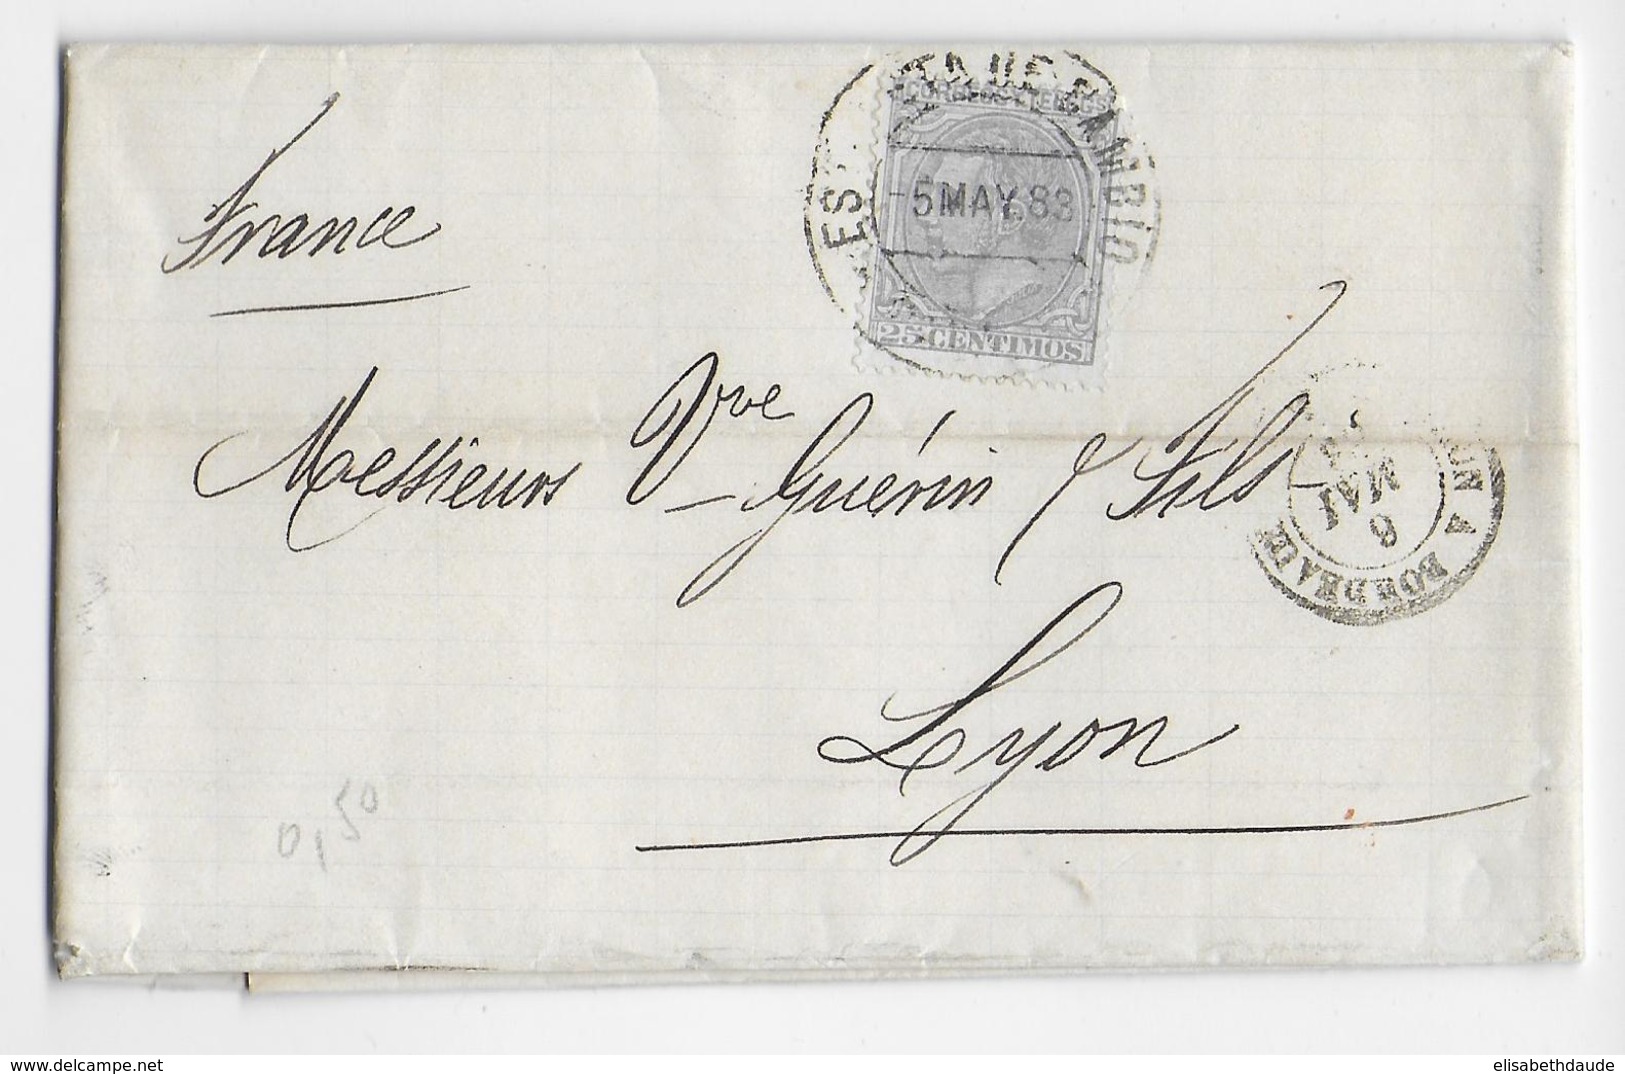 France
CORREOS Y TELEGS
25 CENTIMOS
DE CAMBIO
5 MAY. 83
Messieurs Vve Guérin & Fils
A BORDEAUX
6
MAI
Lyon
0,50
elisabethdaude
www.delcampe.net